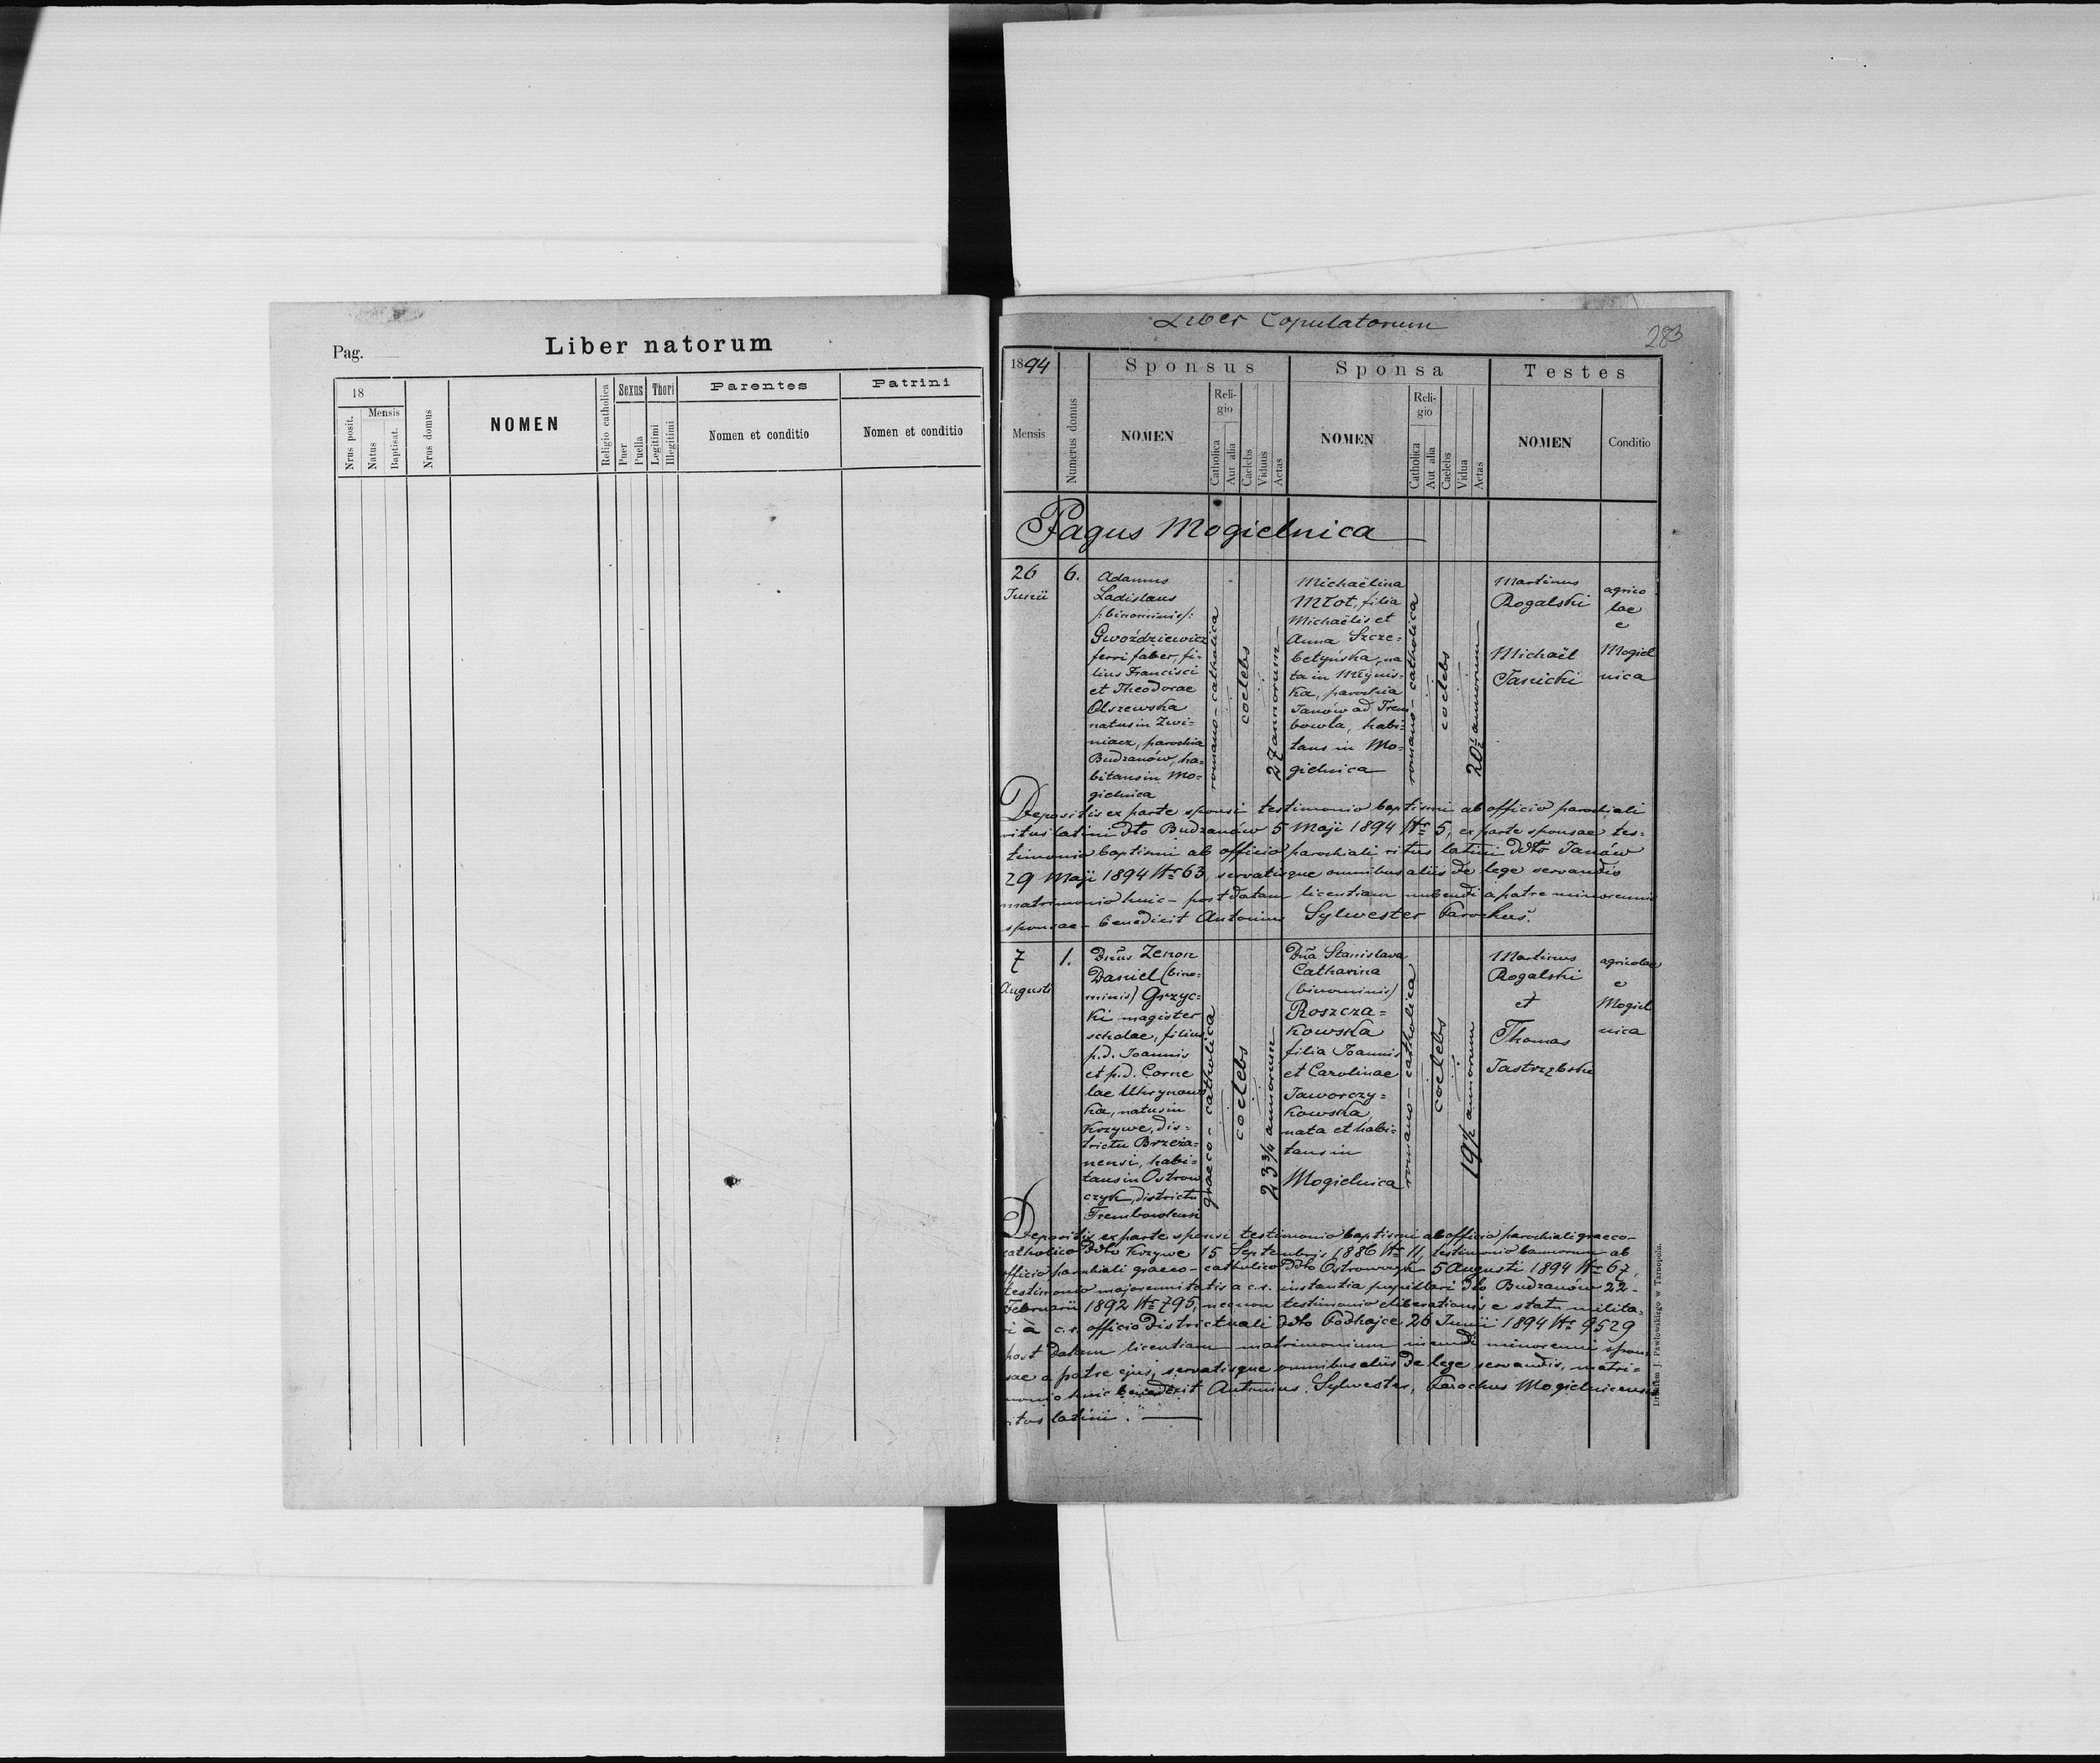 Pag.
Liber natorum
18
Nrus posit.
Mensis
Natus
Baptisat.
Nrus domus
NOMEN
Religio catholica
Sexus
Puer
Puella
Thori
Legitimi
Illegitimi
Parentes
Nomen et conditio
Patrini
Nomen et conditio
Liber Copulatorum
283
1894
Mensis
Numerus domus
Sponsus
NOMEN
Reli-
gio
Catholica
Aut alia
Caelebs
Viduus
Aetas
Sponsa
NOMEN
Reli-
gio
Catholica
Aut alia
Caelebs
Vidua
Aetas
Testes
NOMEN
Conditio
Pagus Mogielnica
26
Junii
6.
Adamus
Ladislaus
/:binominis/:
Gwoździewicz
ferri faber, fi-
lius Francisci
et Theodorae
Olszewska
natus in Zwi-
niacz, parochia
Budzanów, ha-
bitans in Mo-
gielnica
romano-catholica
coelebs
27 annorum
Michaëlina
Młot, filia
Michaëlis et
Anna Szcze-
betyńska, na
ta in Młynis-
ka, parochia
Janów ad Trem
bowla, habi-
tans in Mo-
gielnica
romano-catholica
coelebs
20½ annorum
Martinus
Rogalski
Michaël
Janicki
agrico
lae
e
Mogiel
nica
Depositis ex parte sponsi testimonio baptismi ab officio parochiali
ritus latini ddto Budzanów 5 Maji 1894 Nr 5, ex parte sponsae tes-
timonio baptismi ab officio parochiali ritus latini ddto Janów
29 Maji 1894 Nr 63, servatisque omnibus aliis de lege servandis
matrimonio huic - post datam licentiam nubendi a patre minorennis
sponsae - benedixit Antonius Sylwester Parochus.
7
Augusti
1.
Dnus Zenon
Daniel (bino-
minis) Grzyc-
ki magister
scholae, filius
p.d. Joannis
et p.d. Corne
lae Uhrynows
ka, natus in
Krzywe, dis-
trictu Brzeża-
nensi, habi-
tans in Ostrow
czyk, districtu
Trembowlensi
graeco-catholica
coelebs
23 3/4 annorum
Dna Stanislava
Catharina
(binominis)
Roszcza-
kowska
filia Joannis
et Carolinae
Jaworczy-
kowska,
nata et habi-
tans in
Mogielnica
romano-catholica
coelebs
19½ annorum
Martinus
Rogalski
et
Thomas
Jastrzębski
agricolae
e
Mogiel
nica
Depositis ex parte sponsi testimonio baptismi ab officio parochiali graeco-
catholico ddto Krzywe 15 Septembris 1886 Nr 11, testimonio bannorum ab
officio parochiali graeco-catholico ddto Ostrowczyk 5 Augusti 1894 Nr 67,
testimonio majorennitatis a c.r. instantia pupillari ddto Budzanów 22
Februarii 1892 Nr 795, necnon testimonio liberationis e statu milita-
ri à c.r. officio districtuali ddto Podhajce 26 Junii 1894 Nr 9529
post datam licentiam matrimonium ineundi minorenni spon-
sae a patre ejus, servatisque omnibus aliis de lege servandis, matri-
monio huic benedixit Antonius Sylwester, Parochus Mogielnicensis
ritus latini.
Drukiem J. Pawłowskiego w Tarnopolu.